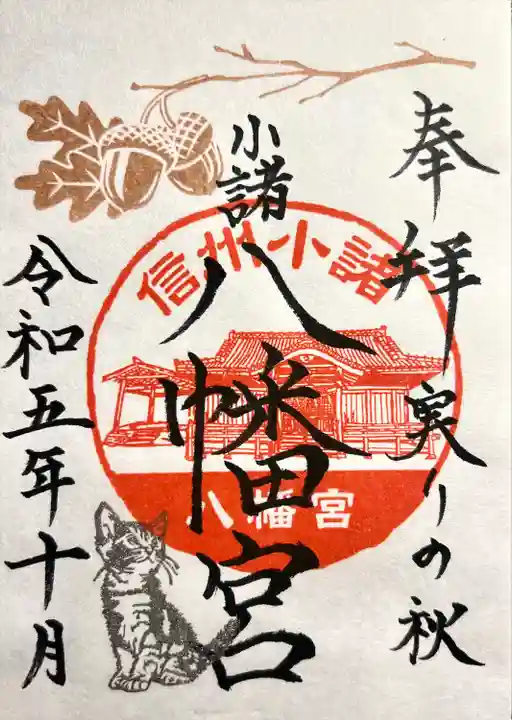 奉拝 実りの秋
小諸
八幡宮
信州小諸
八幡宮
令和五年十月